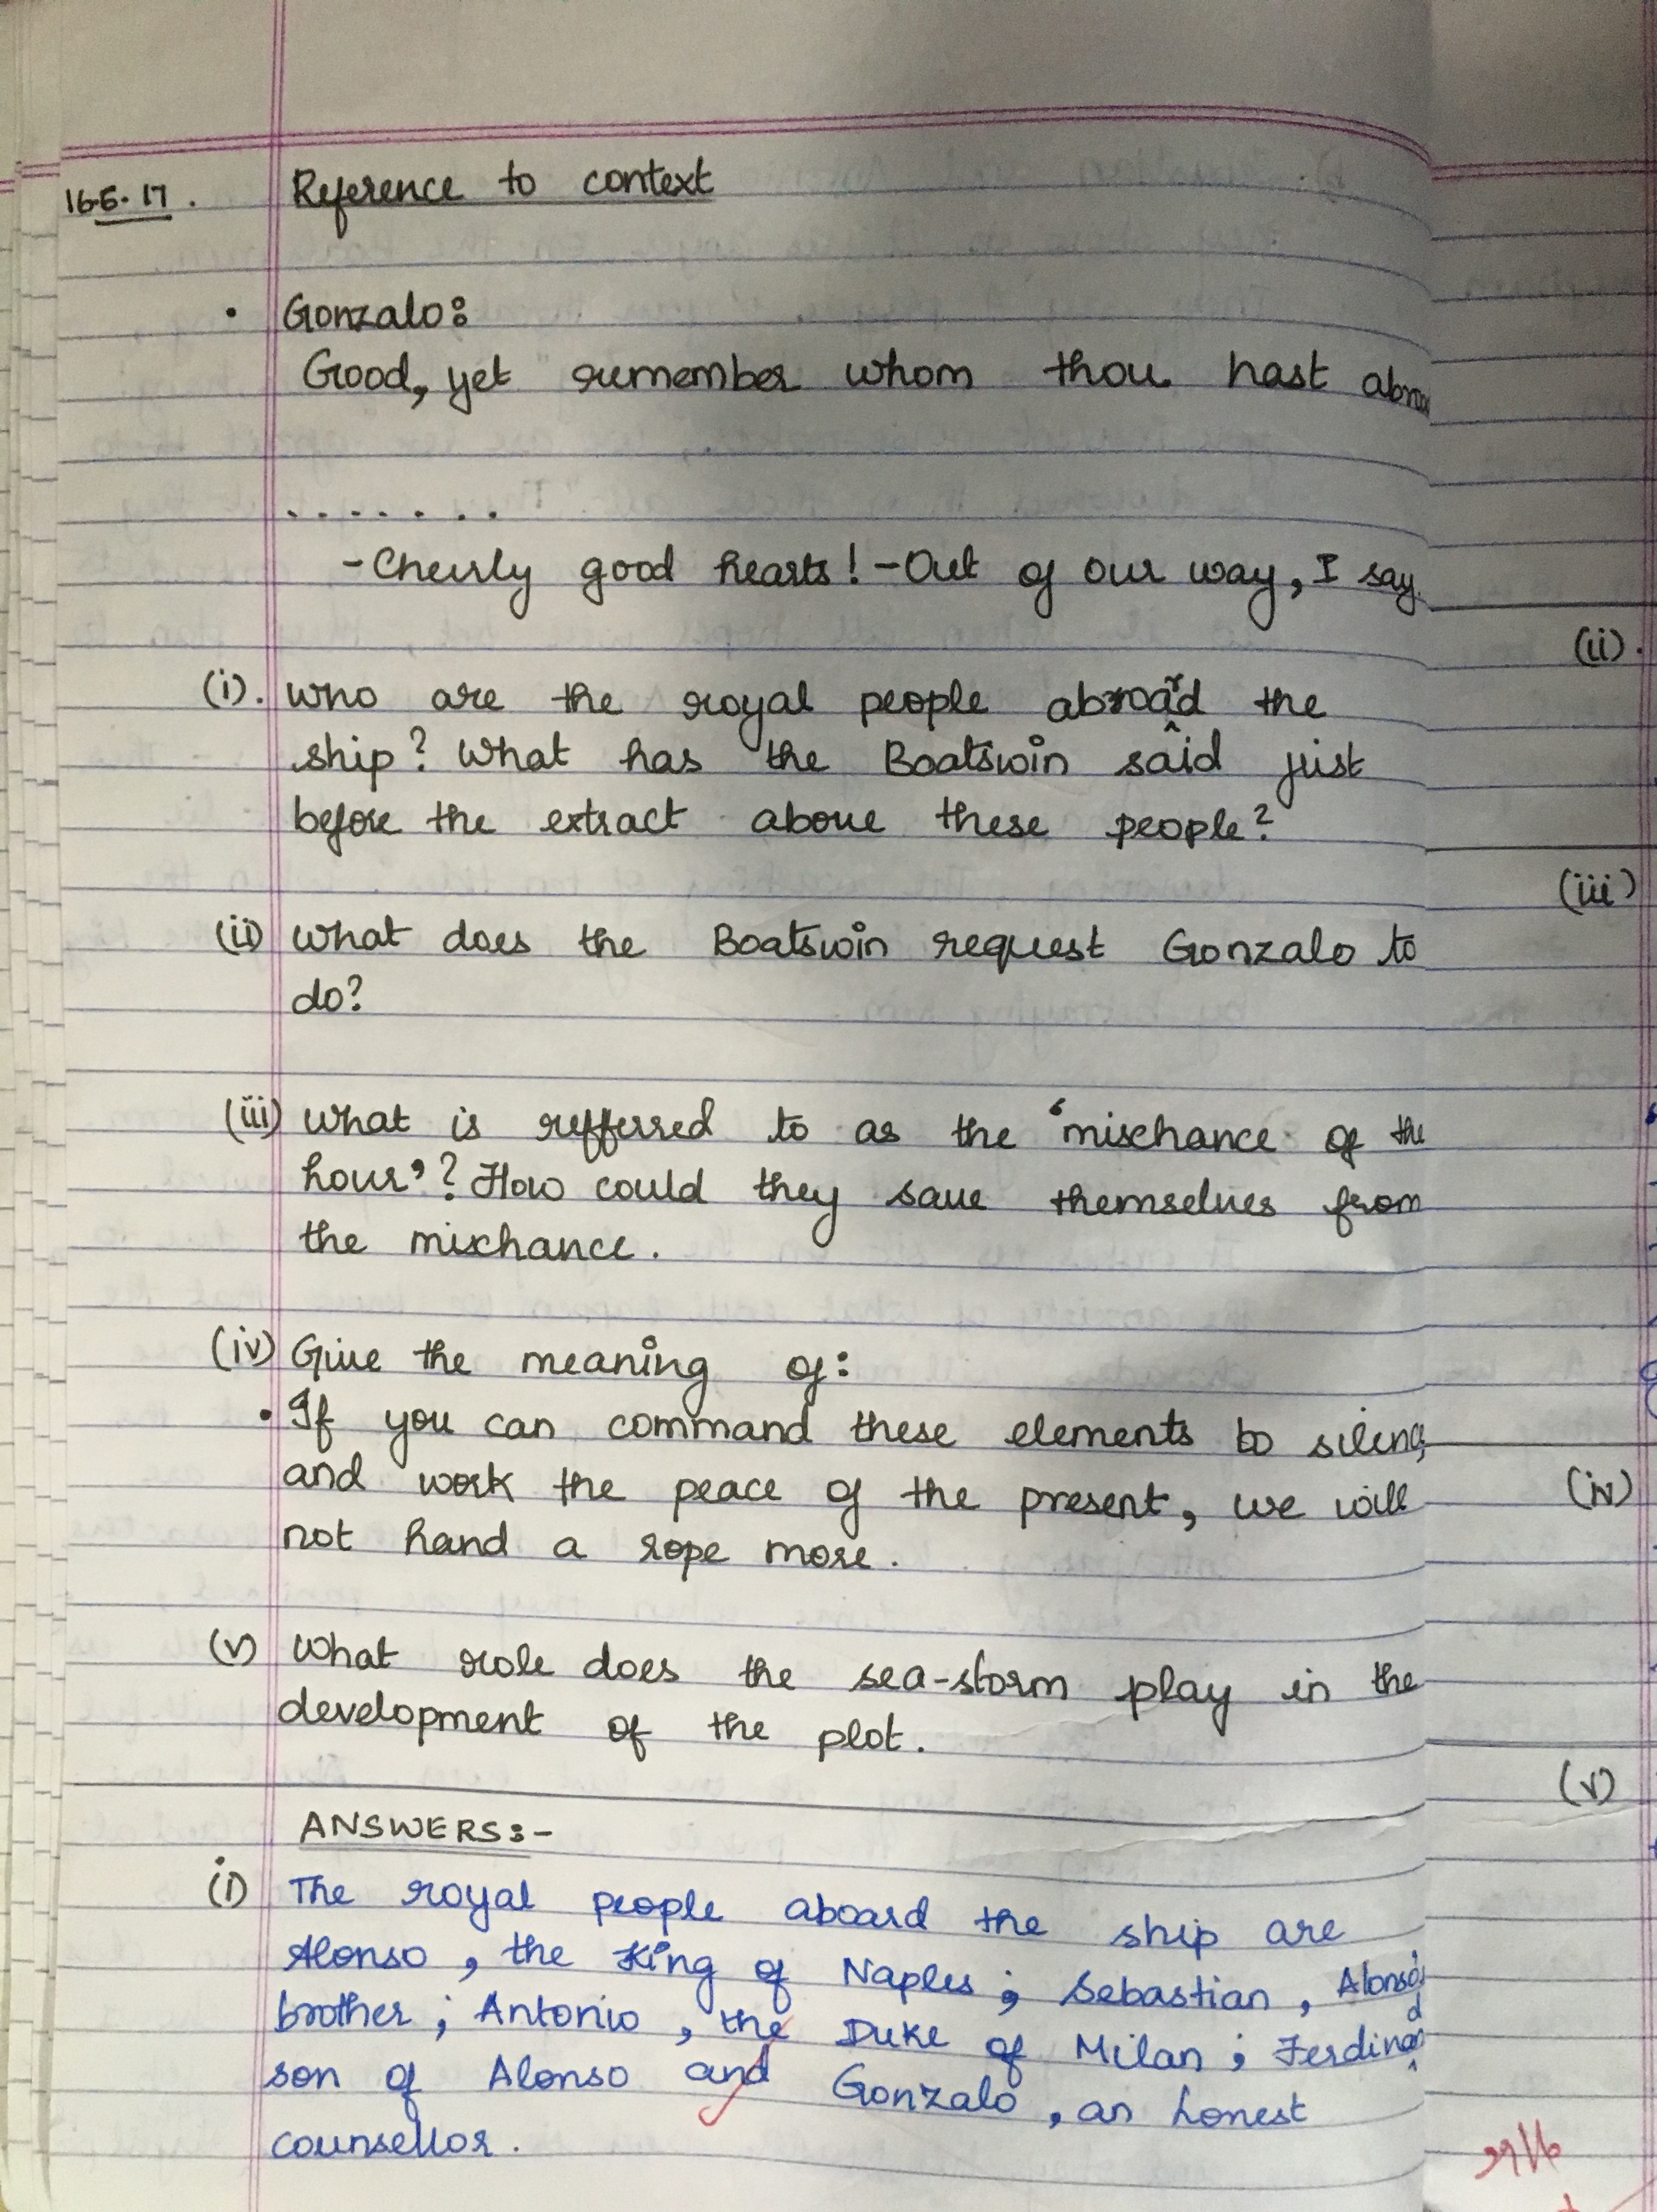 16.5.17.
Reference to context
• Gonzalo:
Good, yet remember whom thou hast
.......
-Cheerly good hearts! -Out of our way, I say.
(i). Who are the royal people abroard the
ship? What has the Boatswin said just
before the extract above these people?
(ii) What does the Boatswin request Gonzalo to
do?
(iii) What is refferred to as the 'mischance of the
hour'? How could they save themselves from
the mischance.
(iv) Give the meaning of:
• If you can command these elements to silence,
and work the peace of the present, we will
not hand a rope more.
(v) What role does the sea-storm play in the
development of the plot.
ANSWERS:-
(i) The royal people aboard the ship are
Alonso, the King of Naples; Sebastian, Alonso's
brother; Antonio, the Duke of Milan; Ferdinand
son of Alonso and Gonzalo, an honest
counsellor.
(ii).
(iii)
(iv)
(v)